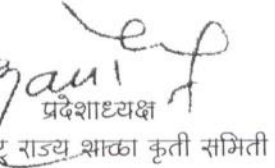 प्रदेशाध्यक्ष
राज्य शाळा कृती समिती